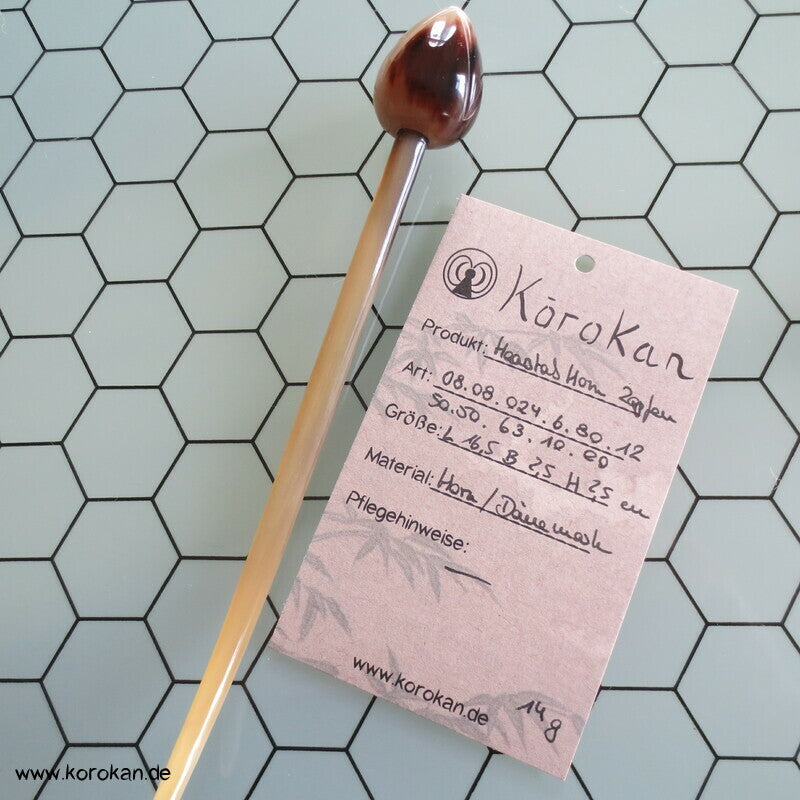 KōroKan
Produkt: Haarstab Horn Zapfen
Art: 08.08.024.6.80.12
50.50.63.10.60
Größe: L 16,5 B 2,5 H 2,5 cm
Material: Horn / Dänemark
Pflegehinweise: —
www.korokan.de
14g
www.korokan.de